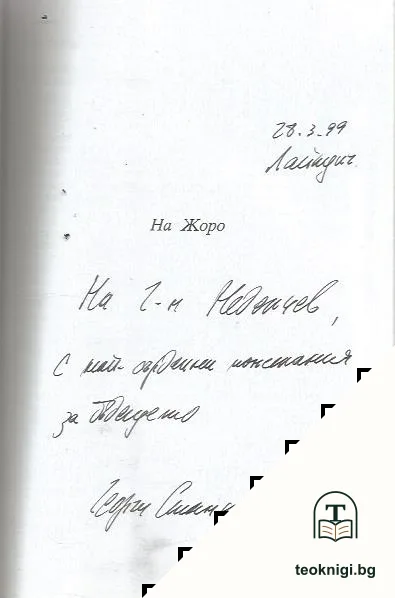 28.3.99
Лайпциг
На Жоро
На г-н Недялчев,
с най-сърдечни пожелания
за бъдещето
Георги
T
teoknigi.bg